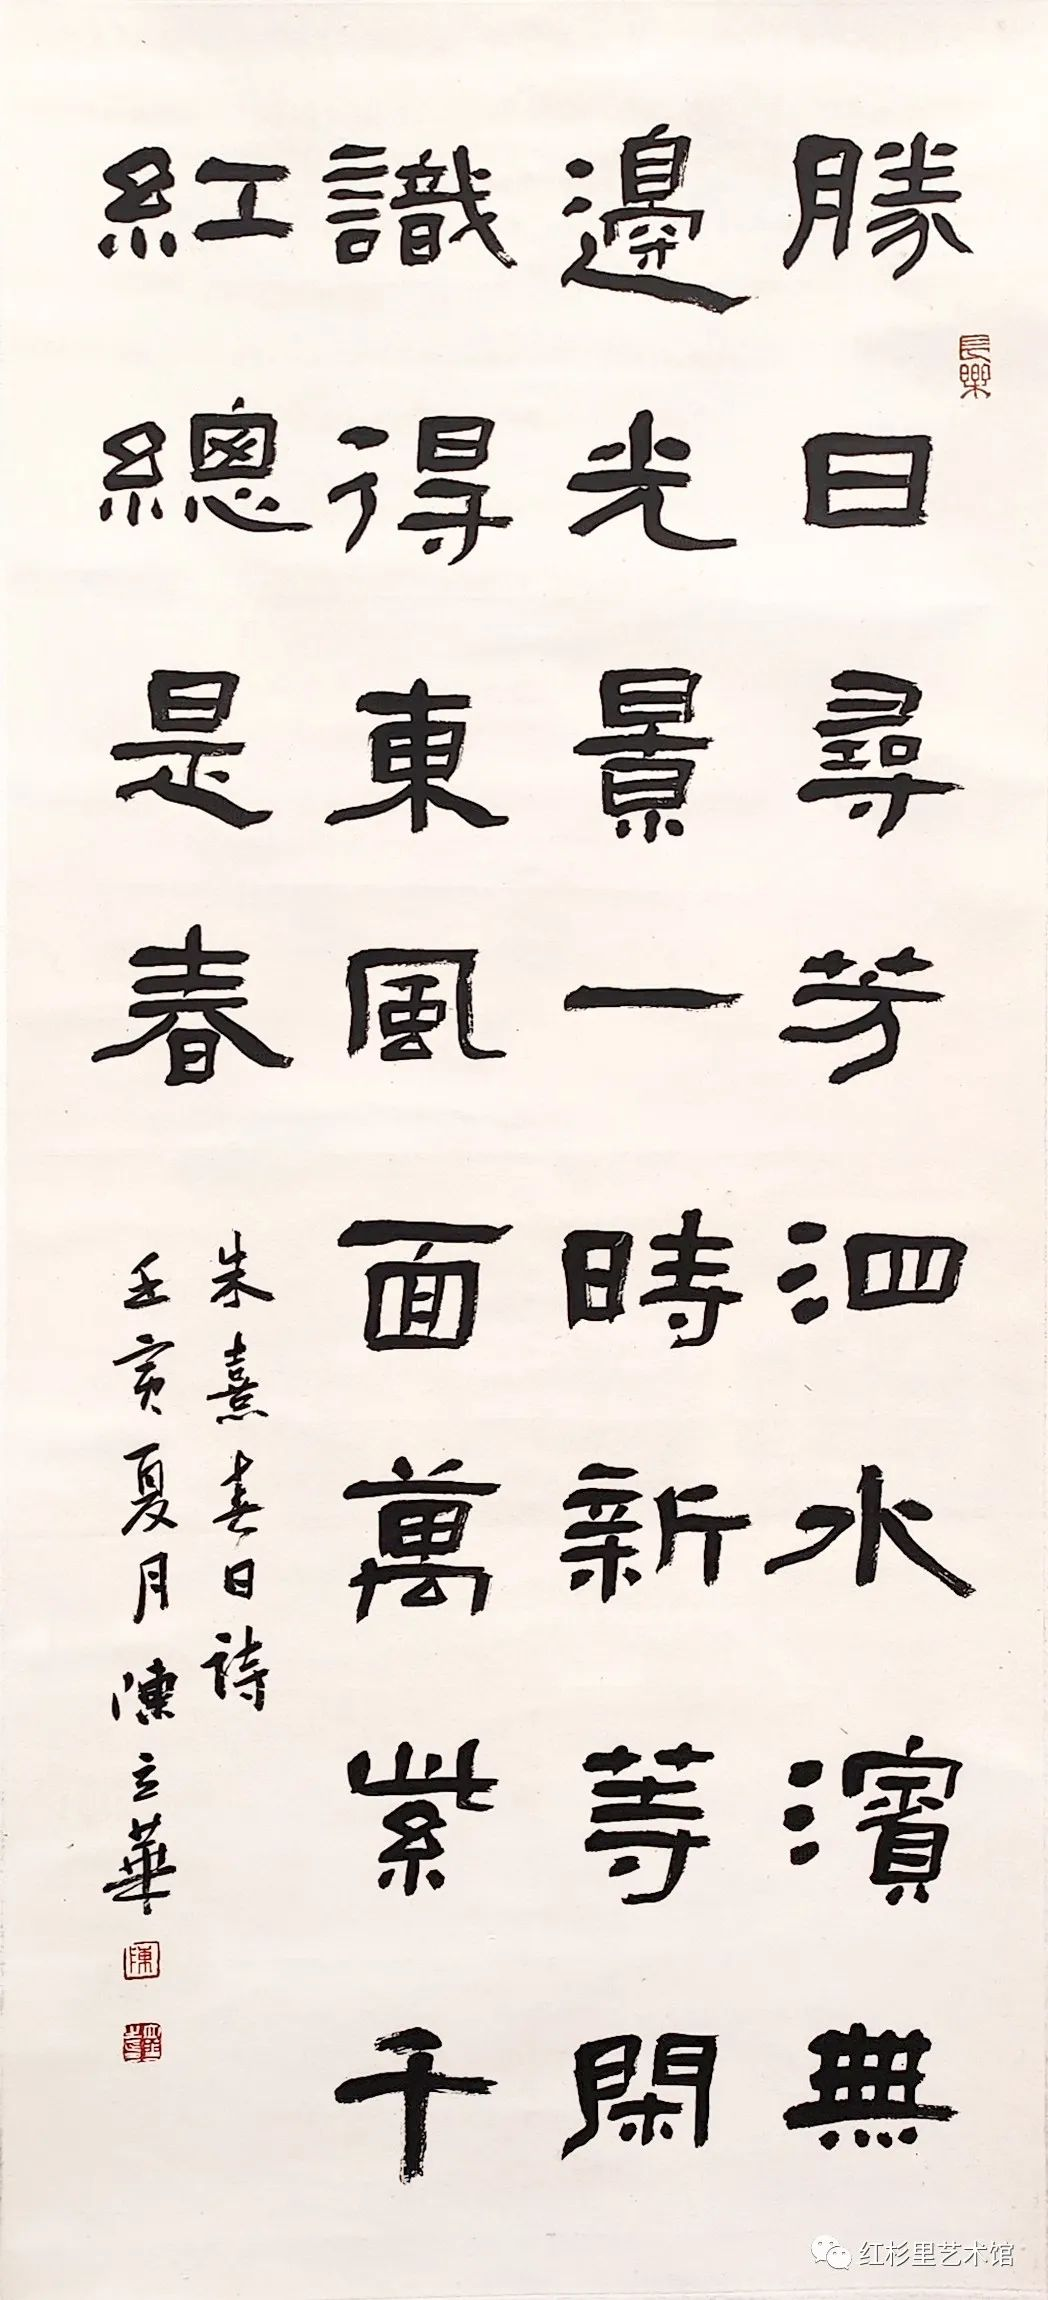 勝日尋芳泗水濱無
邊光景一時新等閑
識得東風面萬紫千
紅總是春
朱熹春日詩
壬寅夏月陳立華
長樂
陳
红杉里艺术馆